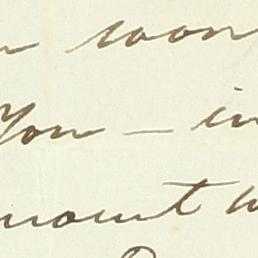 soon
You — in
mount